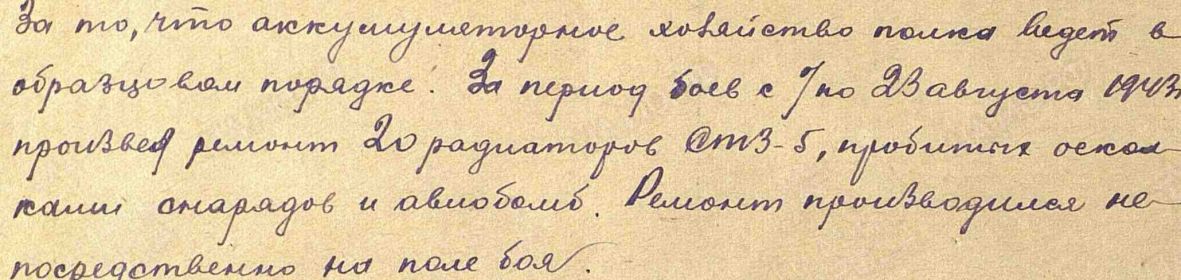 За то, что аккумуляторное хозяйство полка ведет в
образцовом порядке. За период боев с 7 по 23 августа 1943г
произвел ремонт 20 радиаторов СТЗ-5, пробитых оскол-
ками снарядов и авиабомб. Ремонт производился не-
посредственно на поле боя.